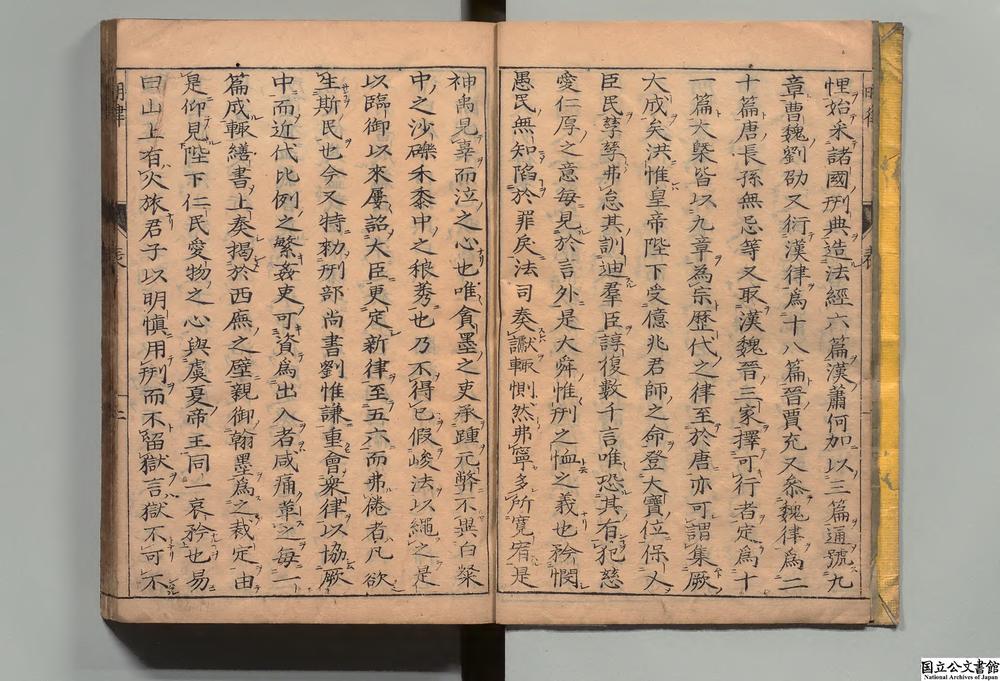 悝始釆諸國刑典造法經六篇漢蕭何加以三篇通號九
章曹魏劉劭又衍漢律爲十八篇晉賈充又叅魏律爲二
十篇唐長孫無忌等又取漢魏晉三家擇可行者定爲十
一篇大槩皆以九章爲宗歷代之律至於唐亦可謂集厥
大成矣洪惟皇帝陛下受億兆君師之命登大寶位保乂
臣民孳孳弗怠其訓迪羣臣諄復數千言唯恐其有犯慈
愛仁厚之意每見於言外是大舜惟刑之恤之義也矜憫
愚民無知陷於罪戾法司奏讞輒惻然弗寧多所寬宥是
神禹見辜而泣之心也唯貪墨之吏承踵元弊不異白粲
中之沙礫禾黍中之稂莠也乃不得已假峻法以繩之是
以臨御以來屢詔大臣更定新律至五六而弗倦者凡欲
生斯民也今又特勑刑部尚書劉惟謙重會衆律以協厥
中而近代比例之繁姦吏可資爲出入者咸痛革之每一
篇成輒繕書上奏揭於西廡之壁親御翰墨爲之裁定由
是仰見陛下仁民愛物之心與虞夏帝王同一哀矜也易
曰山上有火旅君子以明愼用刑而不留獄言獄不可不
明律
表
二
国立公文書館
National Archives of Japan